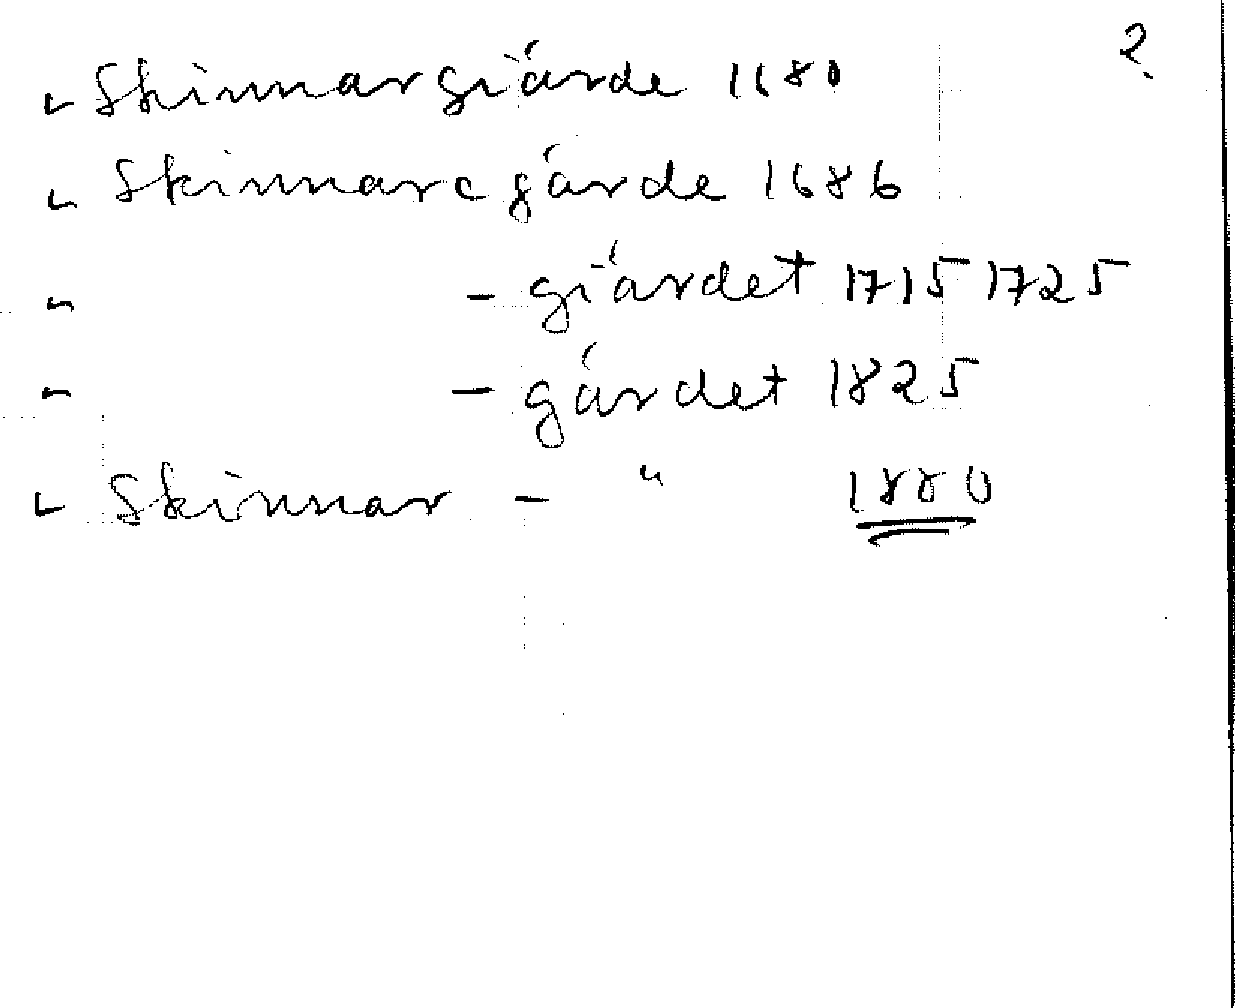 2.
Skinnargiärde 1680
Skinnaregärde 1686
" - giärdet 1715 1725
" - gärdet 1825
Skinnar - " 1880